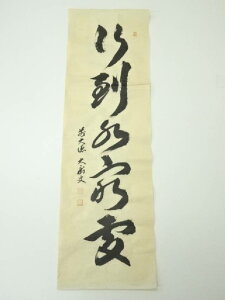 行到水窮處